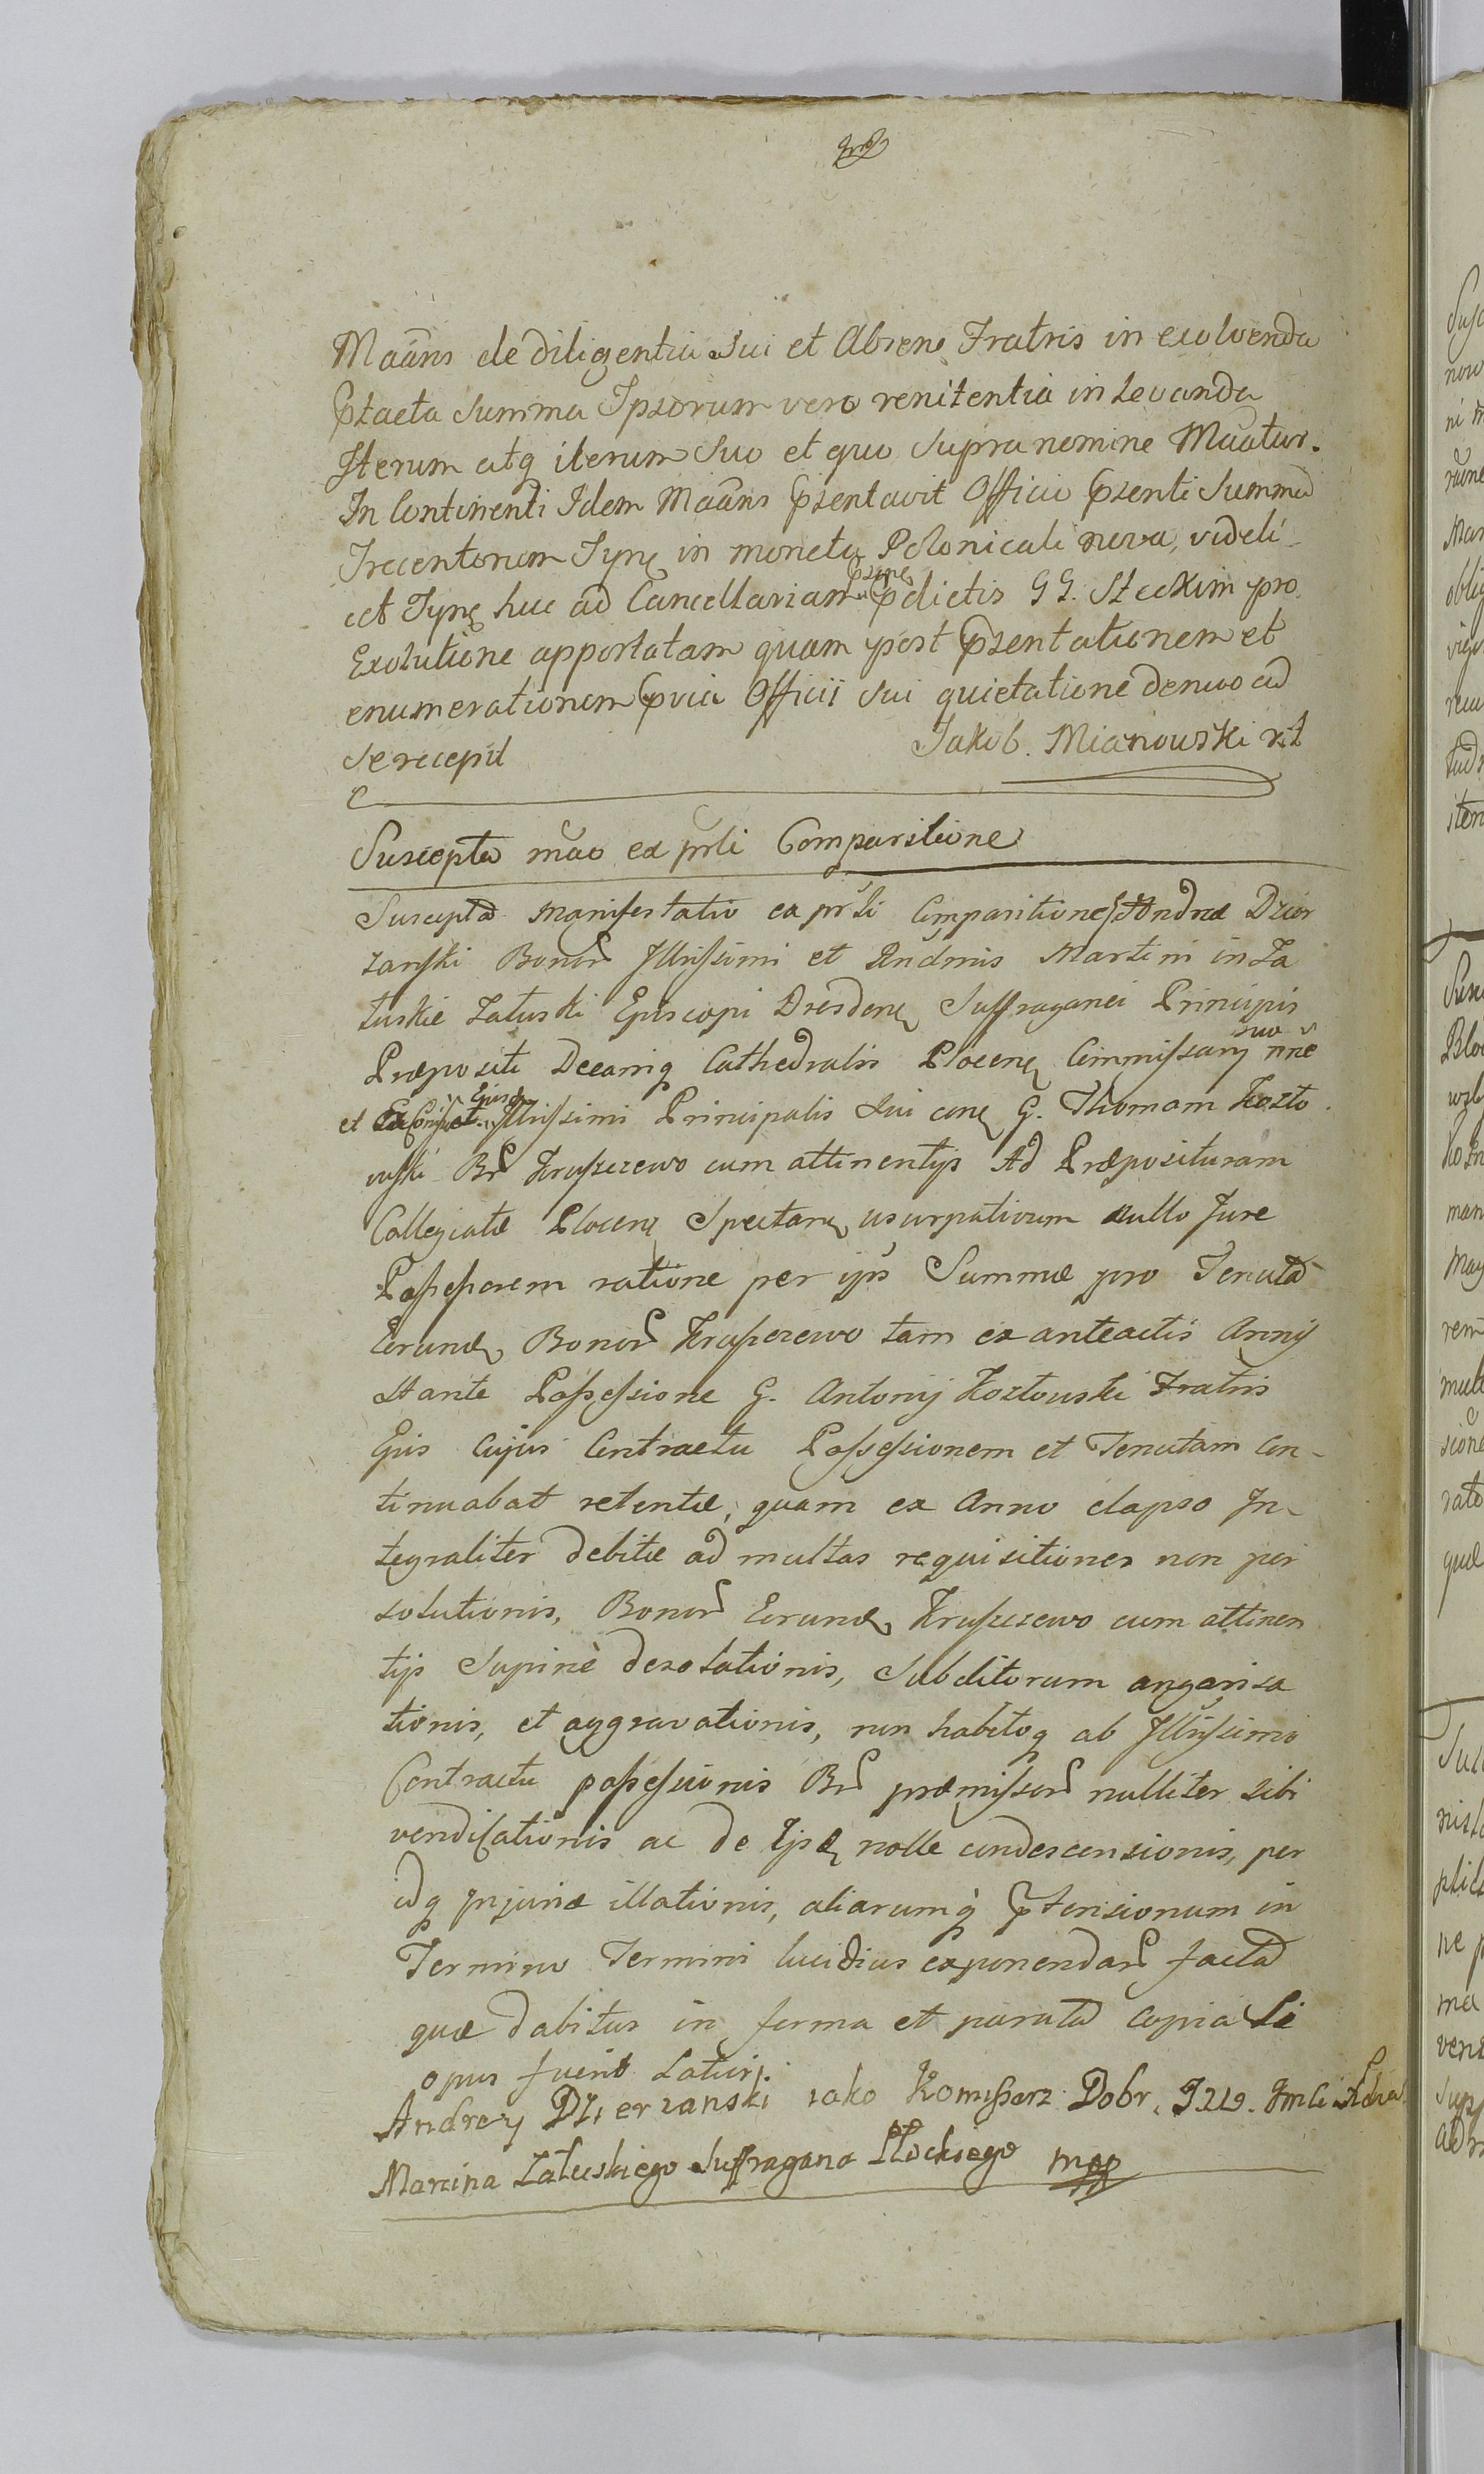 Maãns de diligentia Sui et Absens Fratris in exolvenda
Ptacta Summa Ipsorum vero renitentia in Levanda
Iterum atq iterum Suo et quo Supra nomine Mãatur.
In Continenti Idem Maãns Psentavit Officio Psenti Summã
Trecentorum Tynę in moneta Polonicali nova, videli
cet Tynę huc ad Cancellariam Psenę Pdictis GG. Steckim pro
Exolutione apportatam quam post Psentationem et
enumerationem Pvia Officii Sui quietatione denuo ad
Se recepit
Jakob. Mianowski
Suscepta mão ex prli Comparitione
Suscepta Manifestatio ex prsli Comparitione G Andreæ Dzier
zanski Bonor Illrissimi et Rndmis Martini in Za
luskie Zaluski Episcopi Dresdenę Suffraganei Principis
Præpositi Decaniq Cathedralis Plocenę Commissarij suo nne
et Ejusd Illrissimi Principalis Sui conę G. Thomam Kozło
wski Br Kruszczewo cum attinentijs Ad Præposituram
Collegiatæ Plocenę Spectanę usurpativum nullo Jure
Possessorem ratione per ips Summæ pro Tenuta
Eorundę Bonor Kruszczewo tam ex anteactis Annij
Stante Possessione G. Antonij Kozłowski Fratris
Ejus Cujus Contractu Possessionem et Tenutam Con-
tinuabat retentæ, quam ex Anno elapso In-
tegraliter debitæ ad multas requisitiones non per
solutionis, Bonor Eorundę Kruszczewo cum attinen
tijs Supine desolationis, Subditorum angarisa
tionis, et aggravationis, non habitoq ab Illrissimo
Contractu possessionis Br præmissor nulliter sibi
vendicationis ac de Ijsdę nolle condescensionis, per
idq Injuriæ illationis, aliarumq Ptensionum in
Termino Termini lucidius exponendar facta
quæ dabitur in forma et parata copia Si
opus fuerit Latius.
Andrzey Dzierzanski iako Komissarz Dobr.
Marcina Załuskiego Suffragana Płockiego mpp